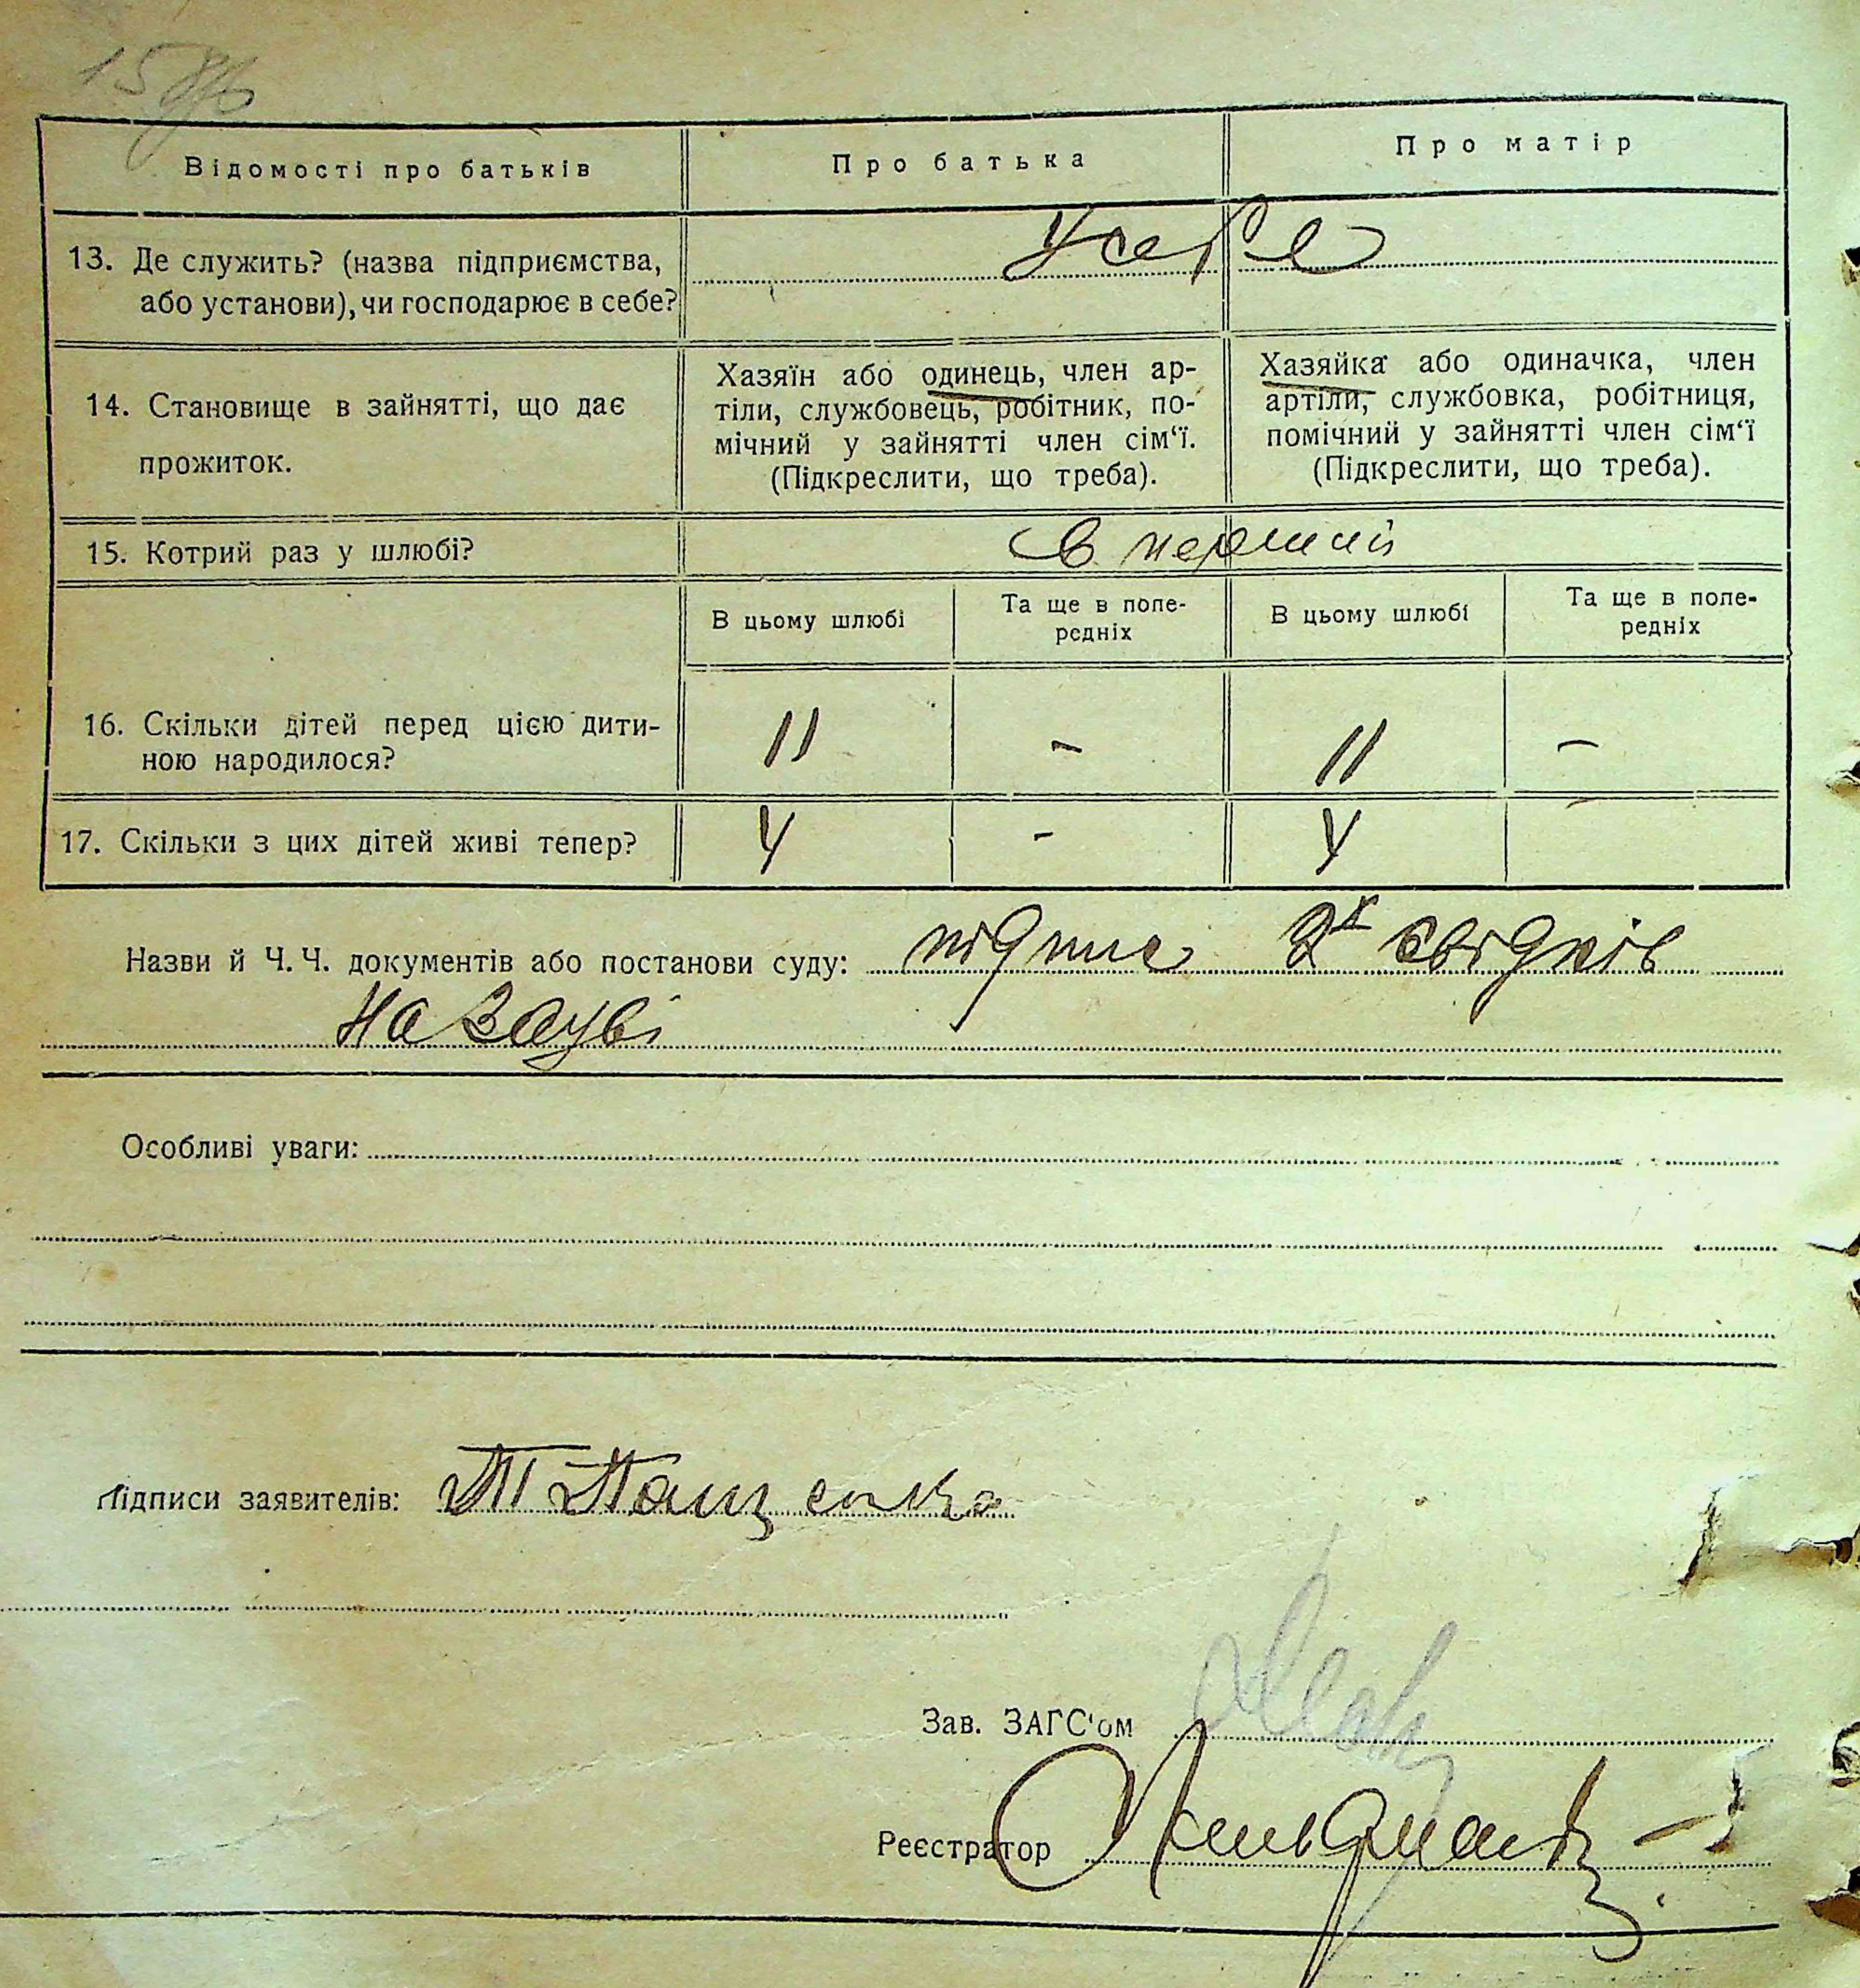 Відомості про батьків
Про батька
Про матір
13. Де служить? (назва підприємства,
або установи), чи господарює в себе?
У себе
14. Становище в зайнятті, що дає
прожиток.
Хазяїн або одинець, член ар-
тіли, службовець, робітник, по-
мічний у зайнятті член сім‘ї.
(Підкреслити, що треба).
Хазяйка або одиначка, член
артіли, службовка, робітниця,
помічний у зайнятті член сім‘ї
(Підкреслити, що треба).
15. Котрий раз у шлюбі?
в перший
В цьому шлюбі
Та ще в попе-
редніх
В цьому шлюбі
Та ще в попе-
редніх
16. Скільки дітей перед цією дити-
ною народилося?
11 - 11 -
17. Скільки з цих дітей живі тепер?
4 - 4
Назви й Ч. Ч. документів або постанови суду: підпис 2х свідків
на заяві
Особливі уваги:
Підписи заявителів: Т Пащенко
Зав. ЗАГС'ом
Реєстратор